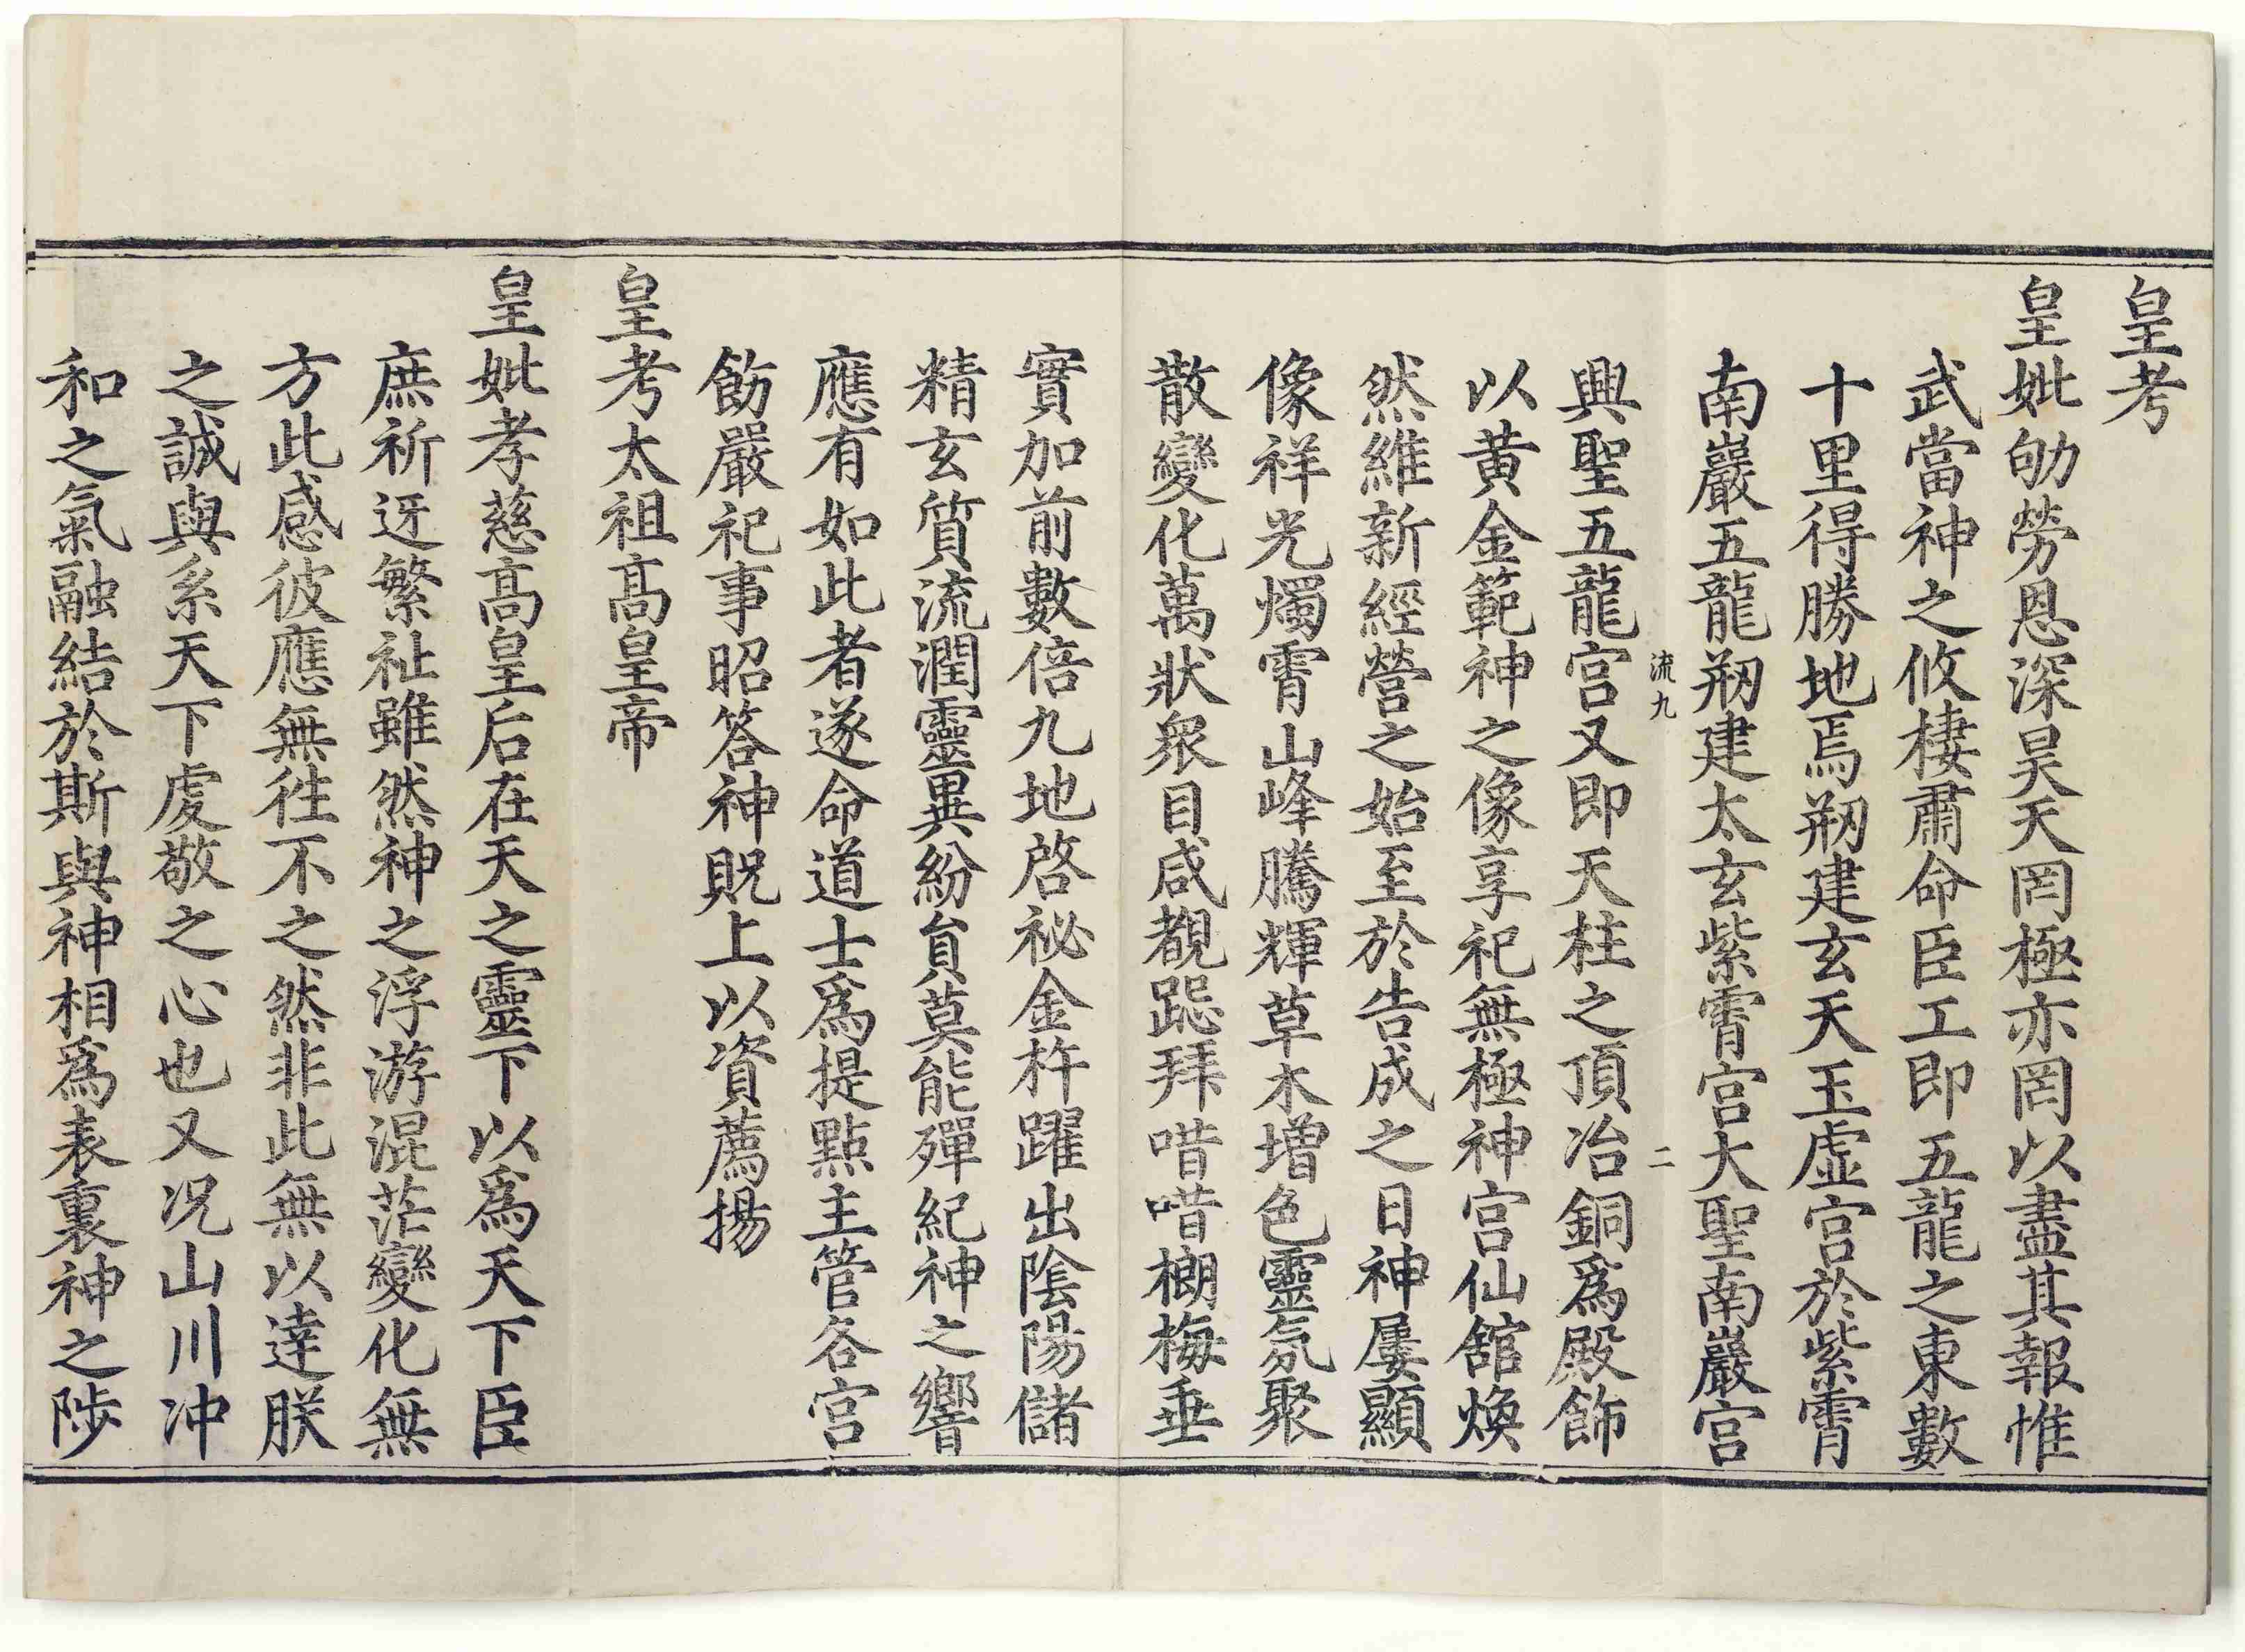 皇考
皇妣劬勞恩深昊天罔極亦罔以盡其報惟
武當神之攸棲肅命臣工即五龍之東數
十里得勝地焉剏建玄天玉虛宮於紫霄
南巖五龍剏建太玄紫霄宮大聖南巖宮
流九 二
興聖五龍宮又即天柱之頂冶銅爲殿飾
以黄金範神之像享祀無極神宮仙舘煥
然維新經營之始至於告成之日神屢顯
像祥光燭霄山峰騰輝草木増色靈氛聚
散變化萬狀衆目咸覩跽拜喈喈榔梅垂
實加前數倍九地啓祕金杵躍出陰陽儲
精玄質流潤靈異紛員莫能殫紀神之響
應有如此者遂命道士爲提㸃主管各宮
飭嚴祀事昭答神貺上以資薦揚
皇考太祖髙皇帝
皇妣孝慈髙皇后在天之靈下以爲天下臣
庶祈迓繁祉雖然神之浮游混茫變化無
方此感彼應無徃不之然非此無以達朕
之誠與系天下虔敬之心也又况山川冲
和之氣融結於斯與神相爲表裏神之陟